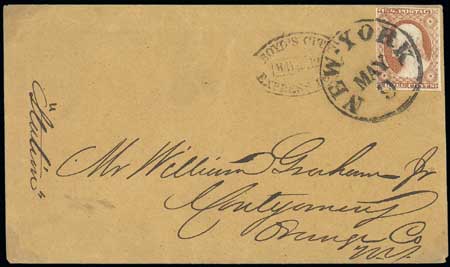 BOYD'S CITY
EXPRESS
NEW-YORK
MAY
9
U.S. POSTAGE
THREE CENTS
"Station"
Mr William Graham Jr
Montgomery
Orange Co
N.Y.